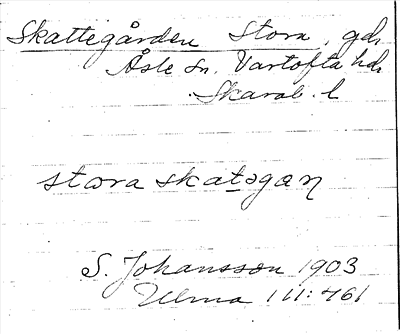 Skattegården Stora, gd,
Åsle sn. Vartofta hd,
Skarab. l
stora skatəgaɳ
S. Johansson 1903
Ulma 111:461